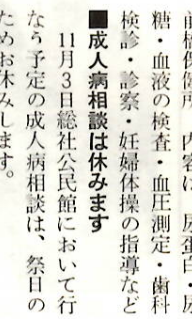 前橋保健所 内容は、尿蛋白・尿
糖・血液の検査・血圧測定・歯科
検診・診察・妊婦体操の指導など
■成人病相談は休みます
11月3日総社公民館において行
なう予定の成人病相談は、祭日の
ためお休みします。